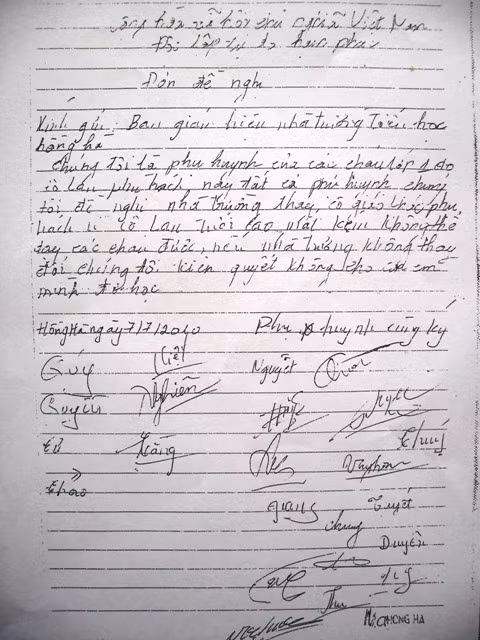 Cộng hòa xã hội chủ nghĩa Việt Nam
Độc lập tự do hạnh phúc
Đơn đề nghị
Kính gửi, Ban giám hiệu nhà trường Tiểu học
hồng hà
chúng tôi là phụ huynh của các cháu lớp 1 do
cô lan phụ trách, nay tất cả phụ huynh chúng
tôi đề nghị nhà trường thay cô giáo khác phụ
trách vì cô Lan tuổi cao mắt kém không thể
dạy các cháu được, nếu nhà trường không thay
đổi chúng tôi kiên quyết không cho con em
mình đi học
Hồng Hà ngày 7/7/2010 Phụ huynh cùng ký
Qúy Nguyệt
Quyên Nghiên
Hằng Thúy
Thao
giang Tuyết
chung
Duyên
Thu
HONG HA